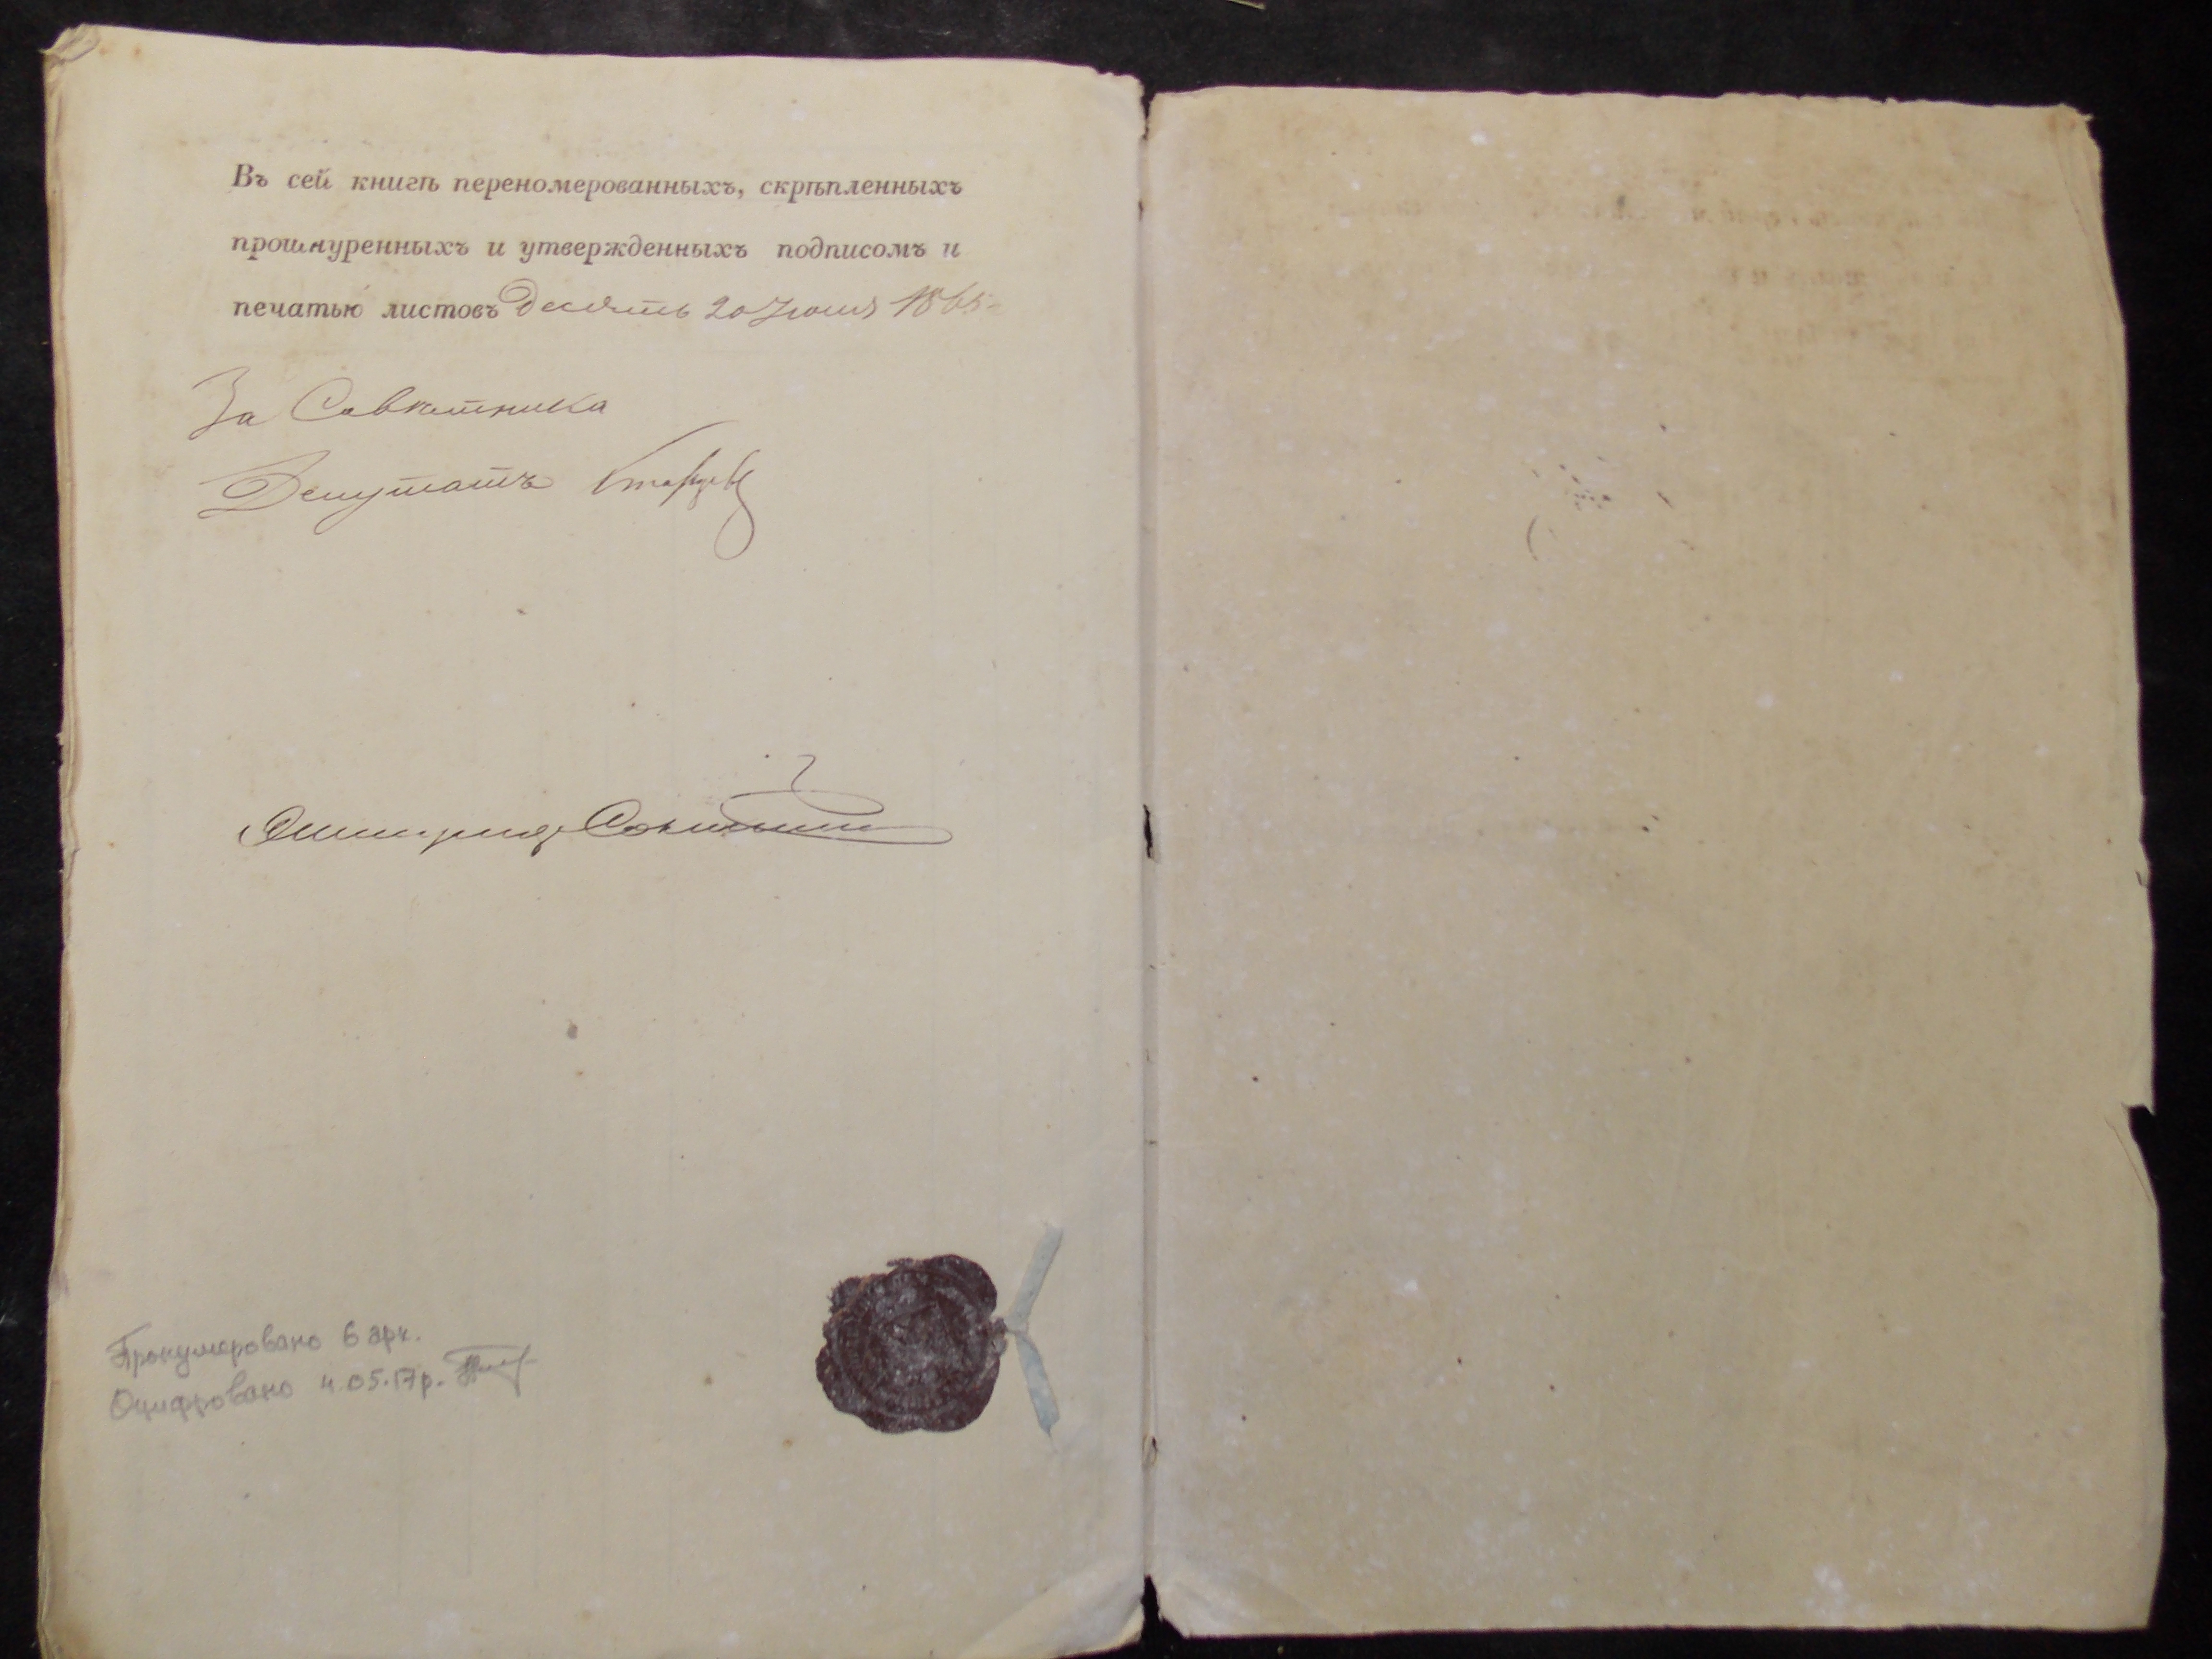 Въ сей книгѣ переномерованныхъ, скрѣпленныхъ
прошнуренныхъ и утвержденныхъ подписомъ и
печатью листовъ Десять 20 Іюня 1865
За Совѣтника
Депутатъ
Пронумеровано 6 арк.
Оцифровано 4.05.17р.